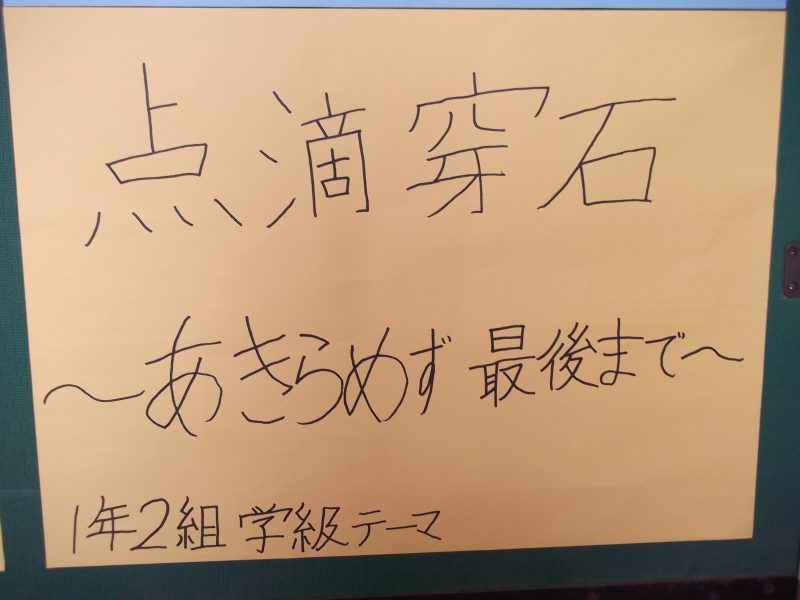 点滴穿石
～あきらめず 最後まで～
1年2組 学級テーマ